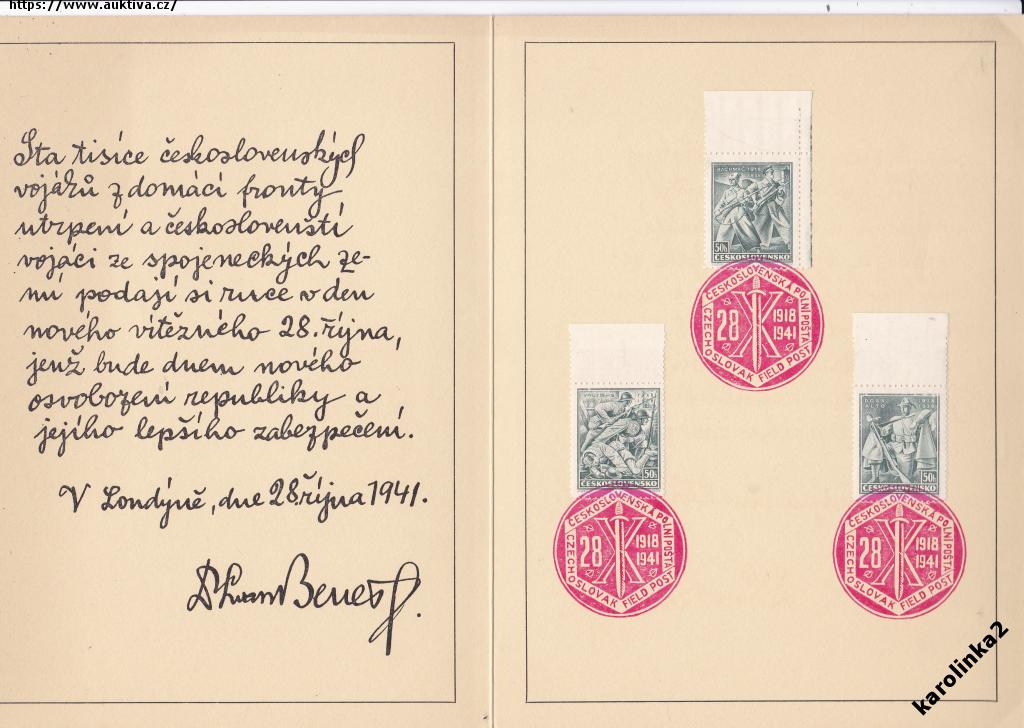 https://www.auktiva.cz/
Sta tisíce československých
vojáků z domácí fronty
utrpení a českoslovenští
vojáci ze spojeneckých ze-
mí podají si ruce v den
nového vítězného 28. října,
jenž bude dnem nového
osvobození republiky a
jejího lepšího zabezpečení.
V Londýně, dne 28 října 1941.
Beneš
BACHMAČ 1918
50h
ČESKOSLOVENSKO
ČESKOSLOVENSKÁ POLNÍ POŠTA
28 X 1918
1941
CZECHOSLOVAK FIELD POST
50h
ČESKOSLOVENSKO
ČESKOSLOVENSKÁ POLNÍ POŠTA
28 X 1918
1941
CZECHOSLOVAK FIELD POST
DOSS ALTO 1918
50h
ČESKOSLOVENSKO
ČESKOSLOVENSKÁ POLNÍ POŠTA
28 X 1918
1941
CZECHOSLOVAK FIELD POST
karolinka2